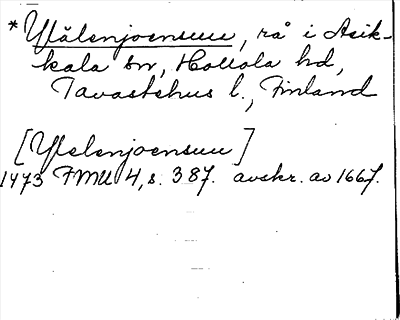 *Ylälenjoensuu, rå i Asik-
kala sn, Hollola hd,
Tavastehus l., Finland
[Ylelenjoensuu]
1473 FMU 4, s. 387. avskr. av 1667.